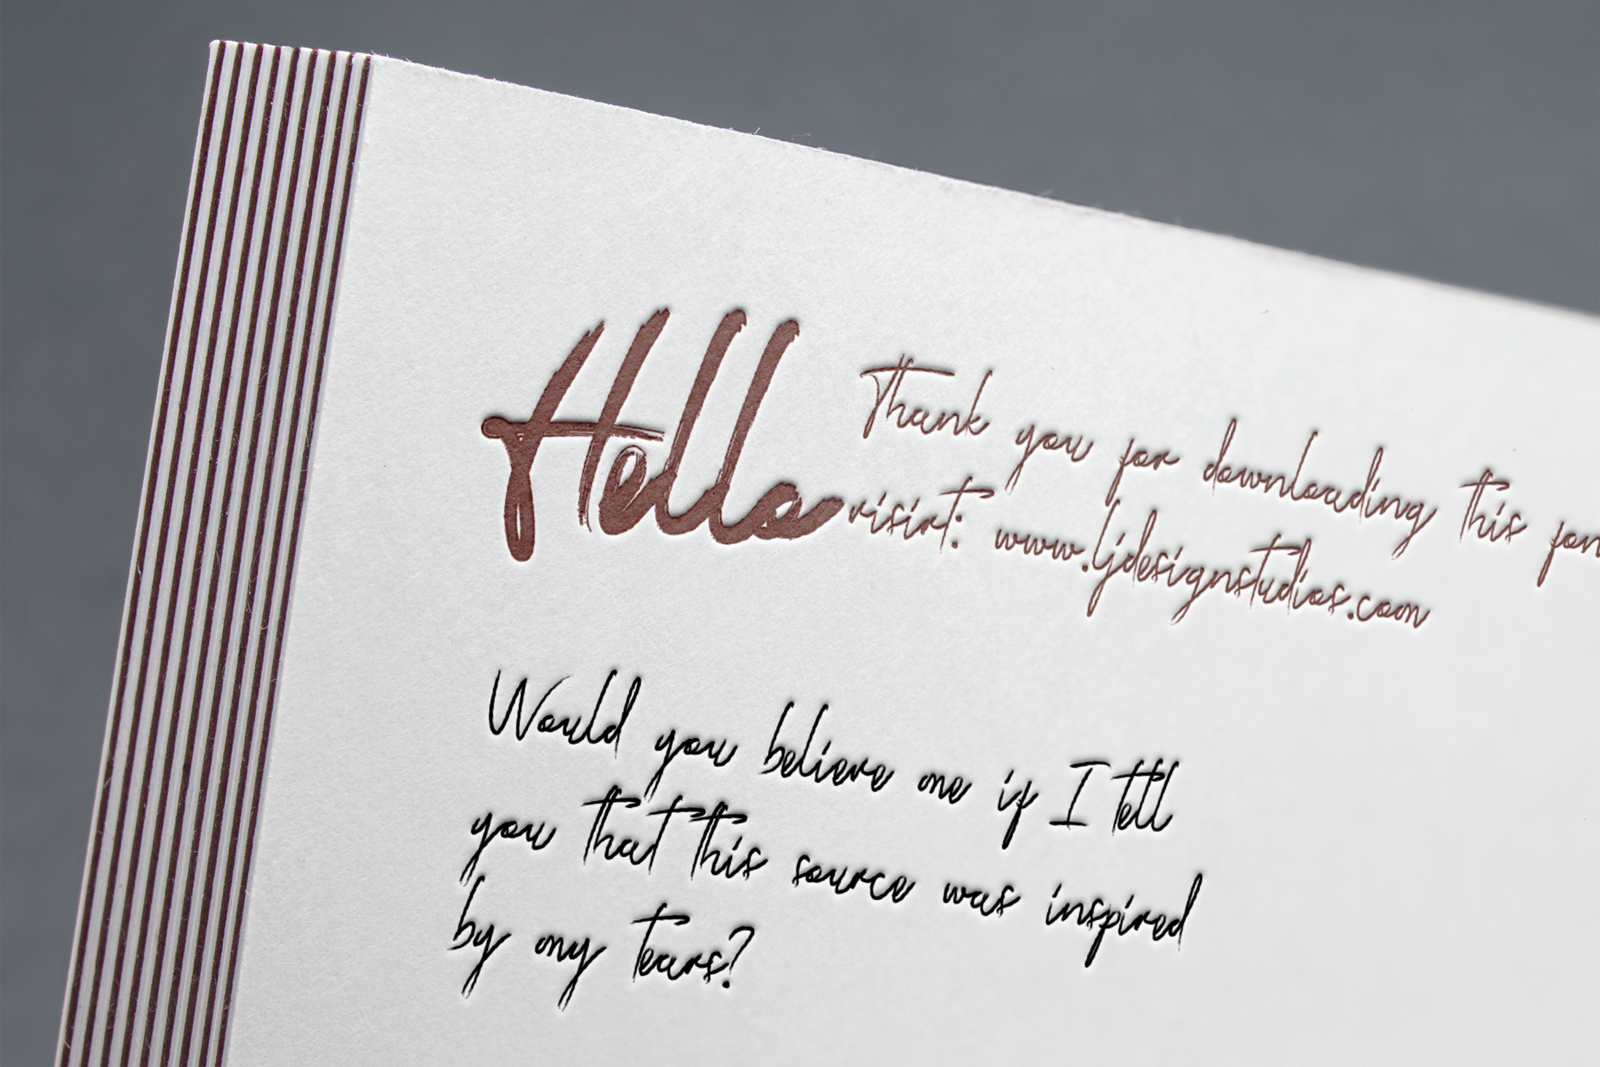 Hello
Thank you for downloading this fon
visirt: www.ljdesignstudios.com
Would you believe me if I tell
you that this source was inspired
by my tears?